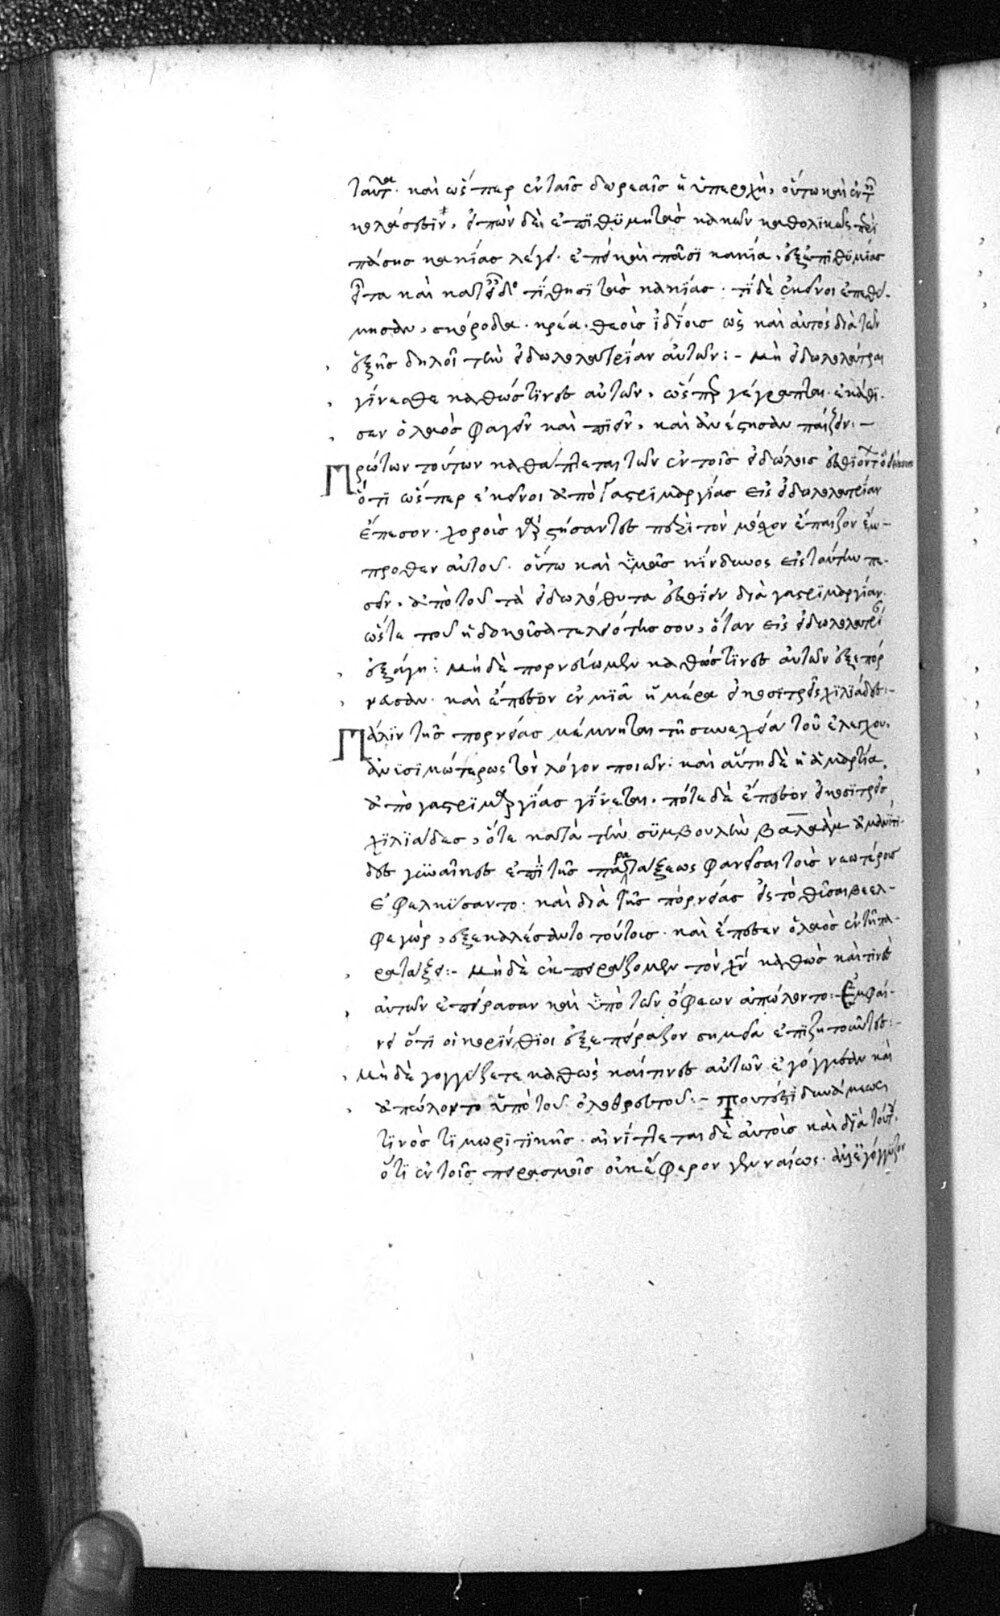 ταῦτα. καὶ ὥσπερ ἐν ταῖς δωρεαῖς ἡ ὑπεροχὴ, οὕτω καὶ ἐν τῇ
κολάσεσιν. εἰπὼν δὲ ἐπιθυμητὰς κακῶν καθολικῶς περὶ
πάσης κακίας λέγει. ἐπεὶ καὶ πᾶσι κακία, ἐξ ἐπιθυμίας
εἶτα καὶ κατ' εἶδος τίθησι τὰς κακίας. τί δὲ ἐκεῖνοι ἐπεθύ-
μησαν, σκόροδα. κρέα. θεοῖς ἰδίοις ὡς καὶ αὐτὸς διὰ τῶν
ἑξῆς δηλοῖ τὴν εἰδωλολατρίαν αὐτῶν:- μὴ εἰδωλολάτραι
γίνεσθε καθώς τινες αὐτῶν, ὥσπερ γέγραπται. ἐκάθι-
σεν ὁ λαὸς φαγεῖν καὶ πιεῖν, καὶ ἀνέστησαν παίζειν:-
Πρώτων τούτων καθάπτεται τῶν ἐν τοῖς εἰδωλείοις ἐσθιόντων
ὅτι ὥσπερ ἐκεῖνοι ἀπὸ γαστριμαργίας εἰς εἰδωλολατρίαν
ἔπεσον. χοροὺς γὰρ στήσαντες περὶ τὸν μόσχον ἔπαιζον ἔμ-
προσθεν αὐτοῦ. οὕτω καὶ ὑμᾶς κίνδυνος εἰς ταύτην πε-
σεῖν, ἀπὸ τοῦ τὰ εἰδωλόθυτα ἐσθίειν διὰ γαστριμαργίαν.
ὥστε ποῦ ἡ δοκοῦσα τελειότης σου, ὅταν εἰς εἰδωλολατρείαν
ἐξάγῃ: μηδὲ πορνεύωμεν καθώς τινες αὐτῶν ἐξεπόρ
νευσαν. καὶ ἔπεσον ἐν μιᾷ ἡμέρα εἰκοσιτρεῖς χιλιάδες:-
Πάλιν τῆς πορνείας μέμνηται τῇ συνεχεία τοῦ ἐλέγχου.
ἀνυσιμώτερως τὸν λόγον ποιῶν: καὶ αὕτη δὲ ἡ ἁμαρτία,
ἀπὸ γαστριμαργίας γίνεται. πότε δὲ ἔπεσον εἰκοσιτρεῖς
χιλιάδες, ὅτε κατὰ τὴν συμβουλὴν βαλαὰμ αἱ μαδιανίτι-
δες γυναῖκες ἐπὶ τῆς παρατάξεως φανεῖσαι τοὺς νεωτέρους
ἐφελκύσαντο. καὶ διὰ τῆς πορνείας εἰς τὸ θῦσαι βεελ-
φεγὼρ, ἐξεκαλέσαντο τούτους. καὶ ἔπεσεν ὁ λαὸς ἐν τῇ πα-
ρατάξει:- μηδὲ ἐκπειράζομεν τὸν χν καθὼς καί τινες
αὐτῶν ἐπείρασαν καὶ ὑπὸ τῶν ὄφεων ἀπώλοντο:- Ἐμφαί-
νει ὅτι οἱ κορίνθιοι ἐξεπείραζον σημεῖα ἐπιζητοῦντες:-
μηδὲ γογγύζετε καθὼς καί τινες αὐτῶν ἐγόγγυσαν καὶ
ἀπώλοντο ὑπὸ τοῦ ὀλοθρευτοῦ:- τουτέστι δυνάμεως
τινὸς τιμωριτικῆς. αἰνίττεται δὲ αὐτοὺς καὶ διὰ τούτου,
ὅτι ἐν τοῖς πειρασμοῖς οὐκ ἔφερον γενναίως. ἀλλ' ἐγόγγυζον